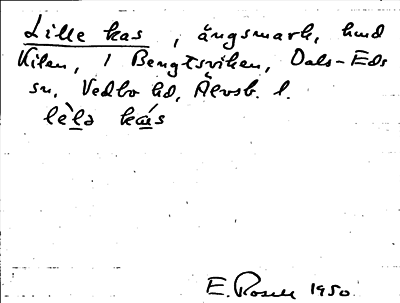 Lille kas, ängsmark, hmd
Kilen, 1 Bengtsviken, Dals-Eds
sn, Vedbo hd, Älvsb. l.
E. Rosell 1950.